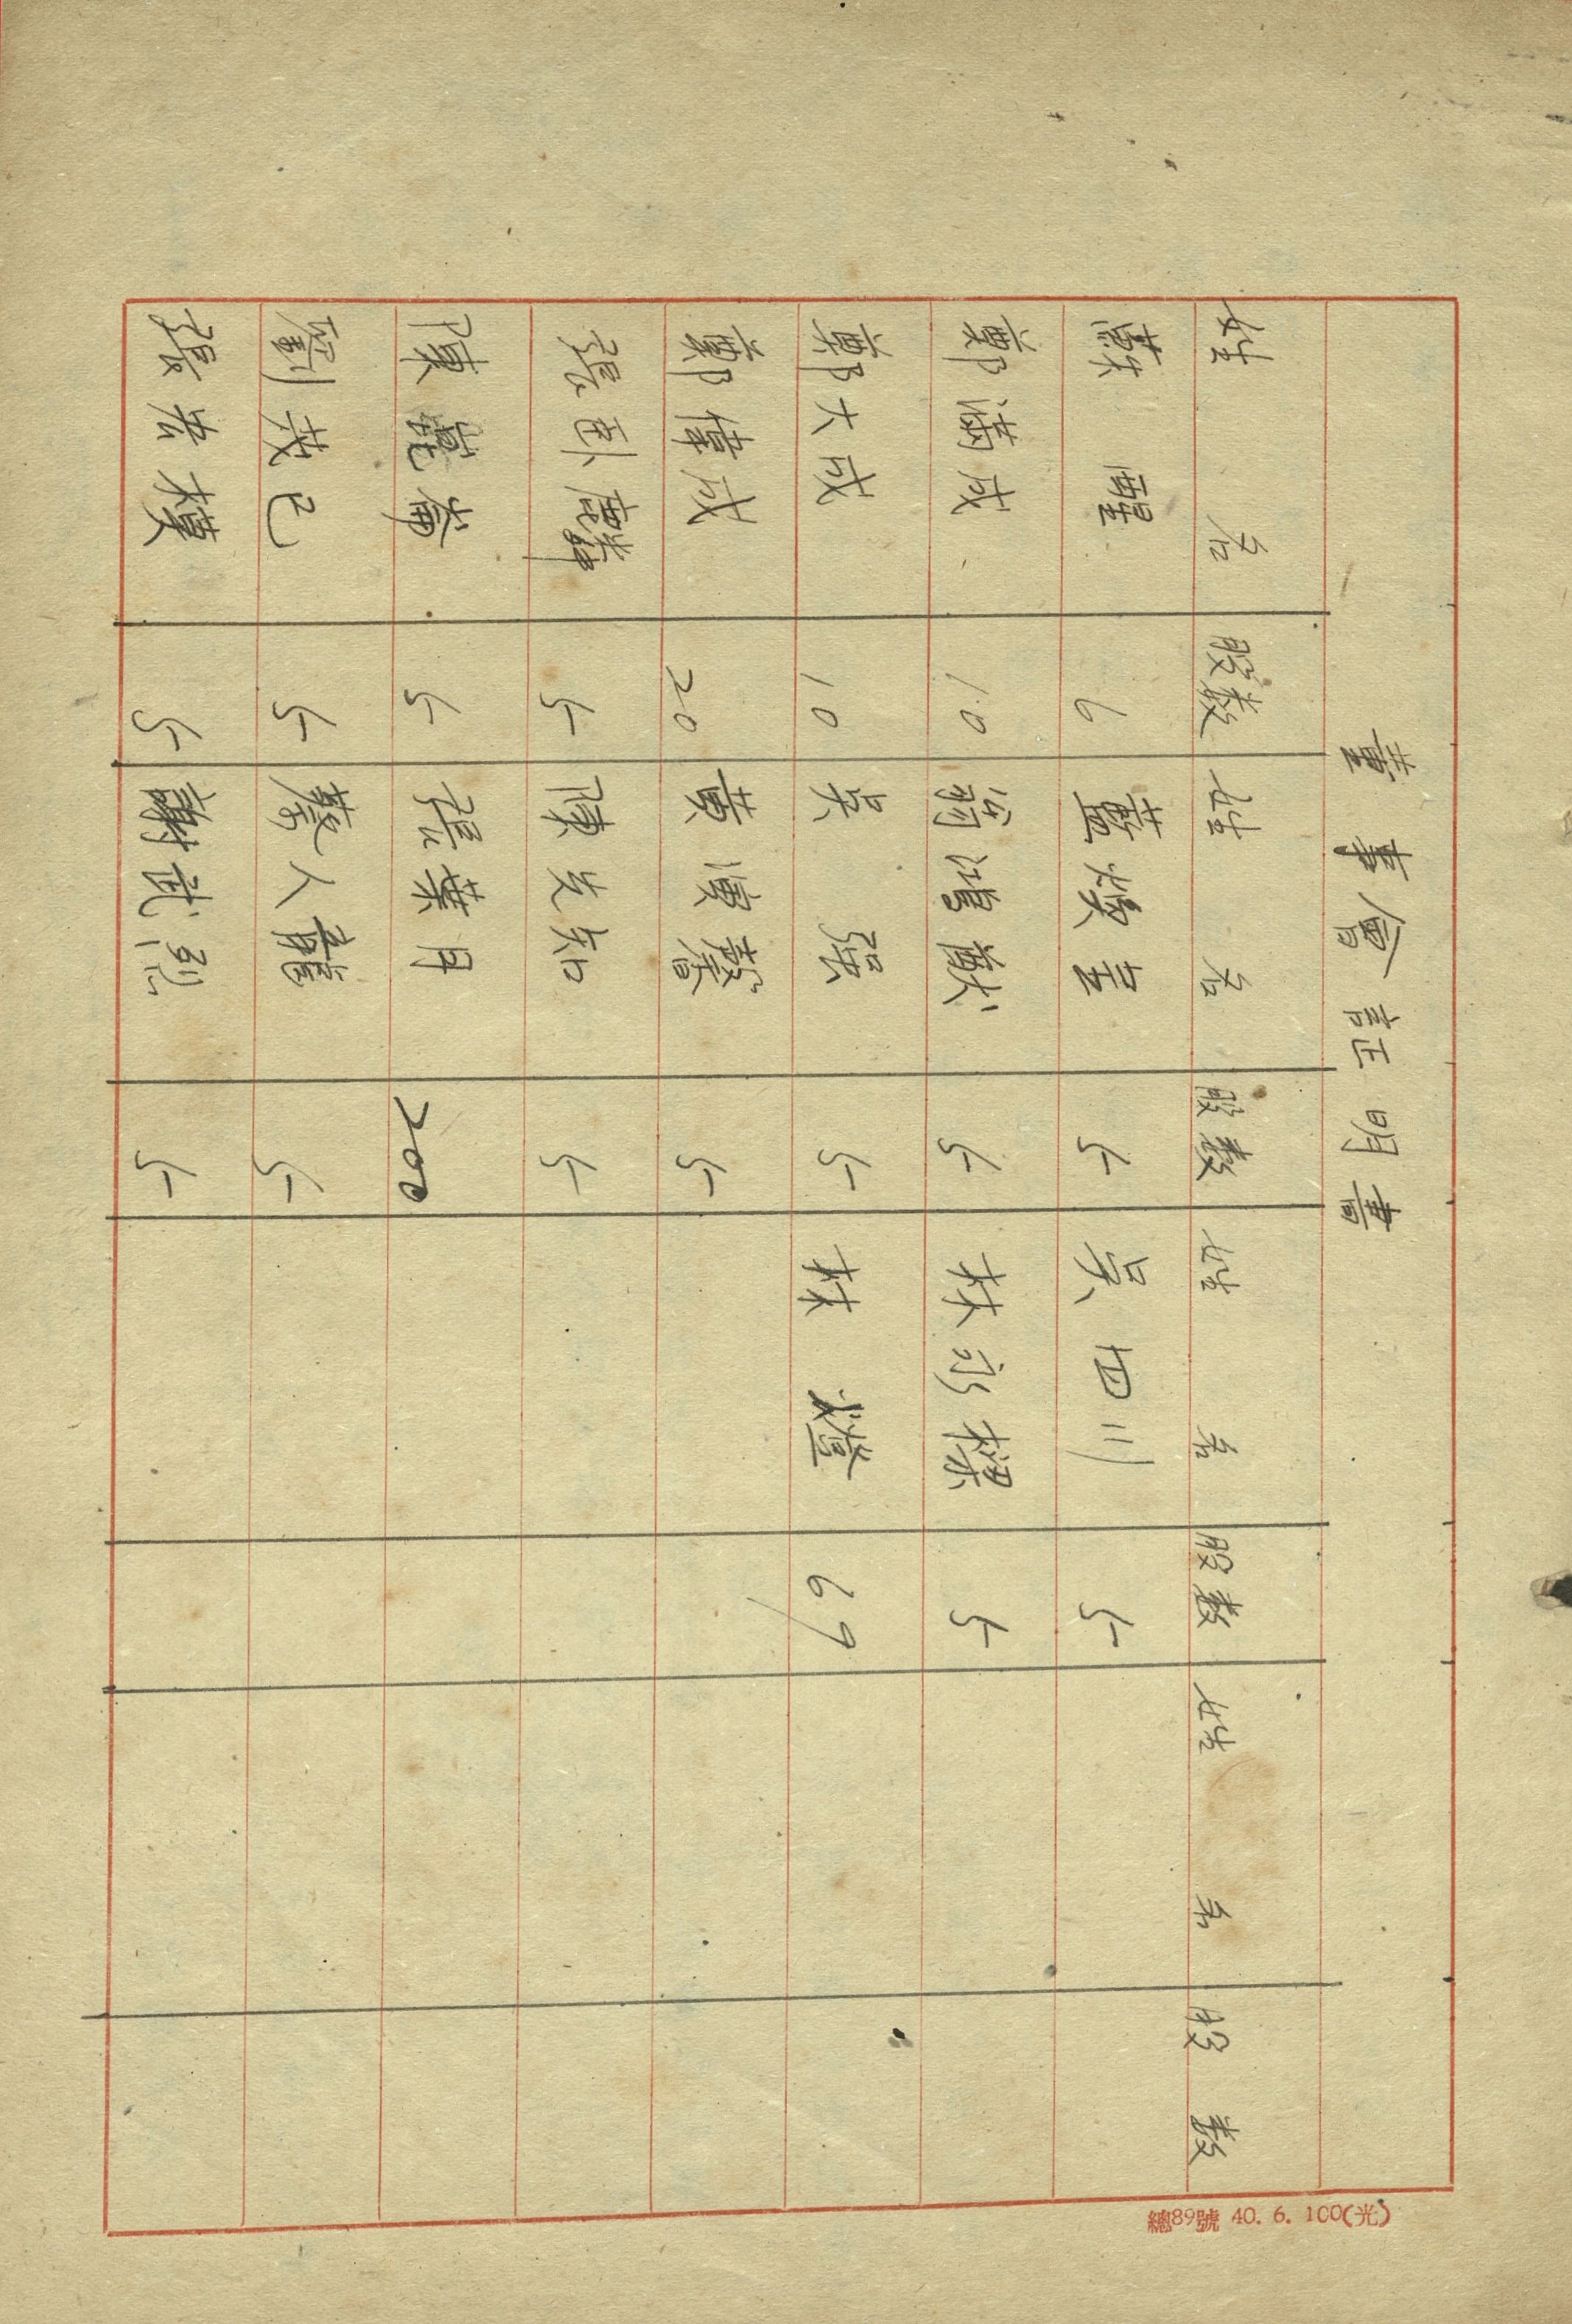 董事會証明書
姓名 股數 姓名 股數 姓名 股數 姓名 股數
6 5 吳四川 5
鄭清成 10 翁鴻猷 5 林彩樑 5
鄭大成 10 吳 5 林燈 69
鄭偉成 20 黃 5
張臥麟 5 陳先知 5
陳 5 張葉月 200
劉茂己 5 蔡人龍 5
張 模 5 謝武烈 5
總89號 40. 6. 100(光)